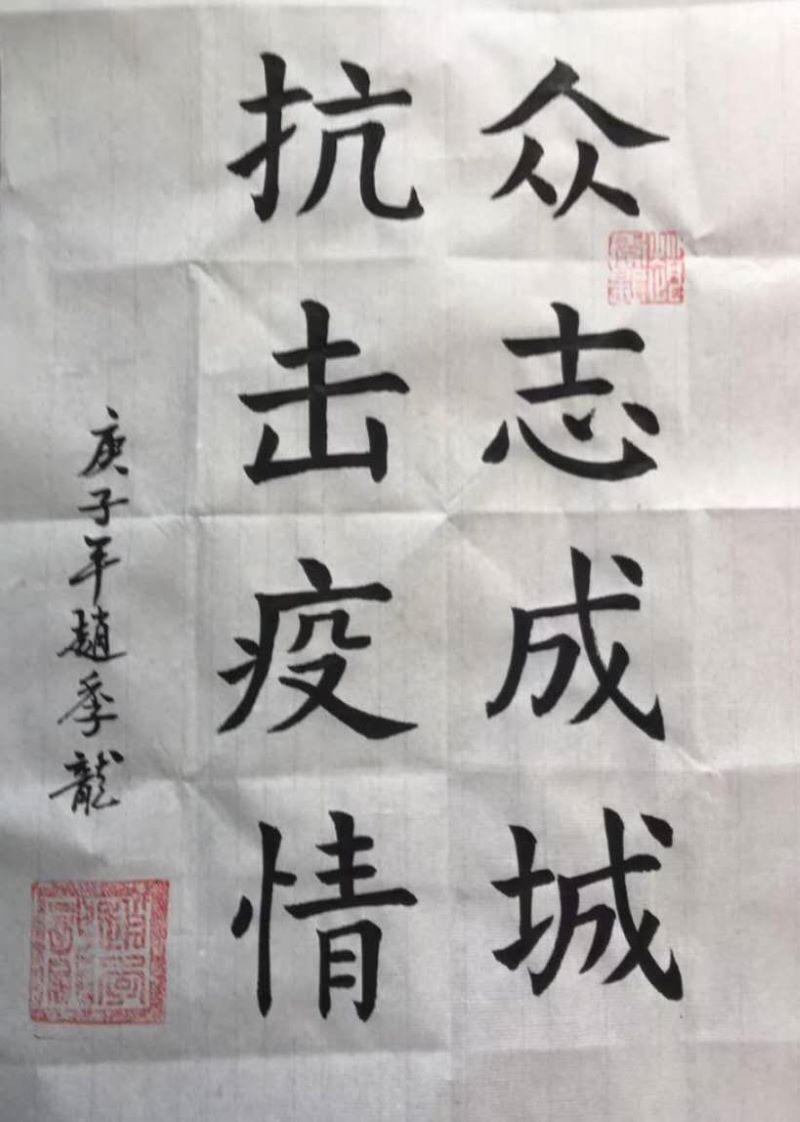 众志成城
抗击疫情
庚子年趙季龍